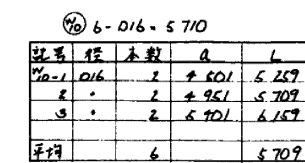 W10 6-D16- 5710
記号 径 本数 a L
W10-1 D16 2 4501 5259
2 〃 2 4951 5709
3 〃 2 5401 6159
平均 6 5709